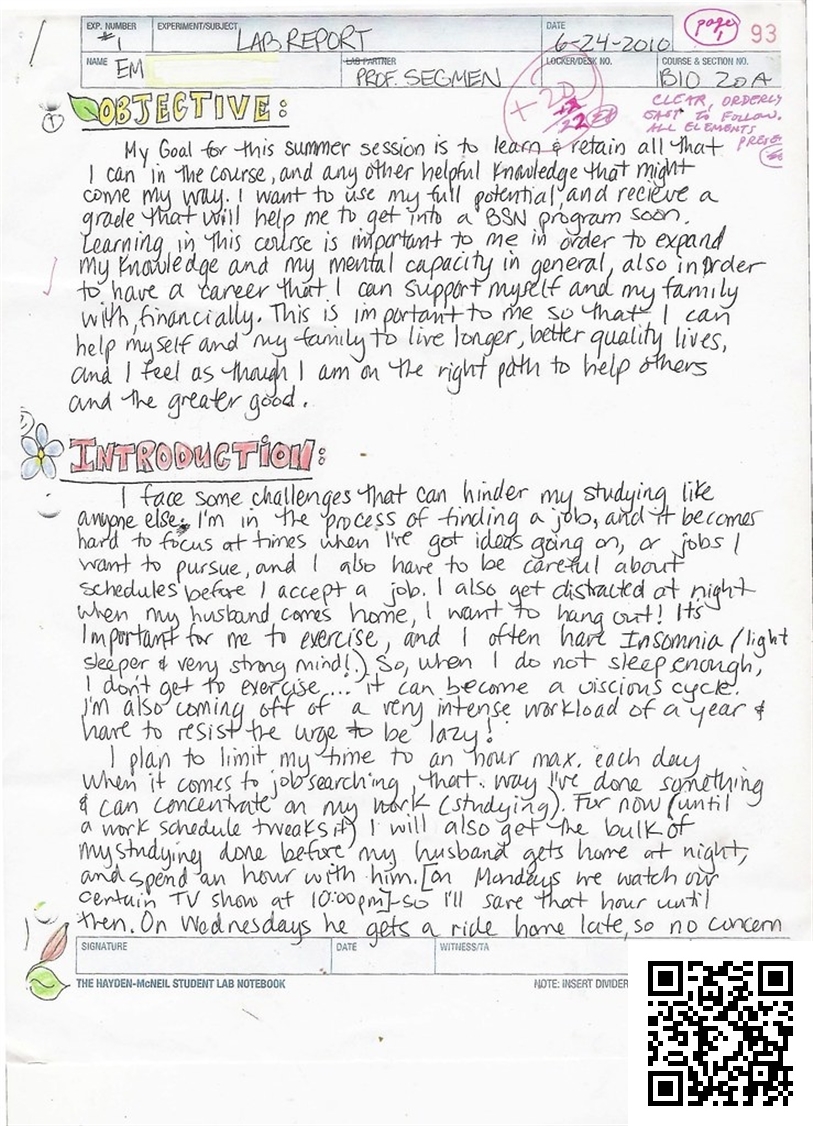 EXP. NUMBER
#1
EXPERIMENT/SUBJECT
LAB REPORT
DATE
6-24-2010
page 1
93
NAME
EM
LAB PARTNER
PROF. SEGMEN
LOCKER/DESK NO.
COURSE & SECTION NO.
BIO 20A
+20
+2
22
CLEAR, ORDERLY
EASY TO FOLLOW.
ALL ELEMENTS
① OBJECTIVE:
My Goal for this summer session is to learn & retain all that
I can in the course, and any other helpful knowledge that might
come my way. I want to use my full potential, and recieve a
grade that will help me to get into a BSN program soon.
Learning in this course is important to me in order to expand
my knowledge and my mental capacity in general, also in order
to have a career that I can support myself and my family
with, financially. This is important to me so that I can
help myself and my family to live longer, better quality lives,
and I feel as though I am on the right path to help others
and the greater good.
② INTRODUCTION:
I face some challenges that can hinder my studying like
anyone else. I'm in the process of finding a job, and it becomes
hard to focus at times when I've got ideas going on, or jobs I
want to pursue, and I also have to be careful about
schedules before I accept a job. I also get distracted at night
when my husband comes home, I want to hang out! It's
Important for me to exercise, and I often have Insomnia (light
sleeper & very strong mind!) So, when I do not sleep enough,
I don't get to exercise... it can become a viscious cycle.
I'm also coming off of a very intense workload of a year &
have to resist the urge to be lazy!
I plan to limit my time to an hour max. each day
when it comes to job searching, that way I've done something
& can concentrate on my work (studying). For now (until
a work schedule tweaks it) I will also get the bulk of
my studying done before my husband gets home at night,
and spend an hour with him. [on Mondays we watch our
certain TV show at 10:00pm]-so I'll save that hour until
then. On Wednesdays he gets a ride home late, so no concern
SIGNATURE
DATE
WITNESS/TA
THE HAYDEN-McNEIL STUDENT LAB NOTEBOOK
NOTE: INSERT DIVIDER